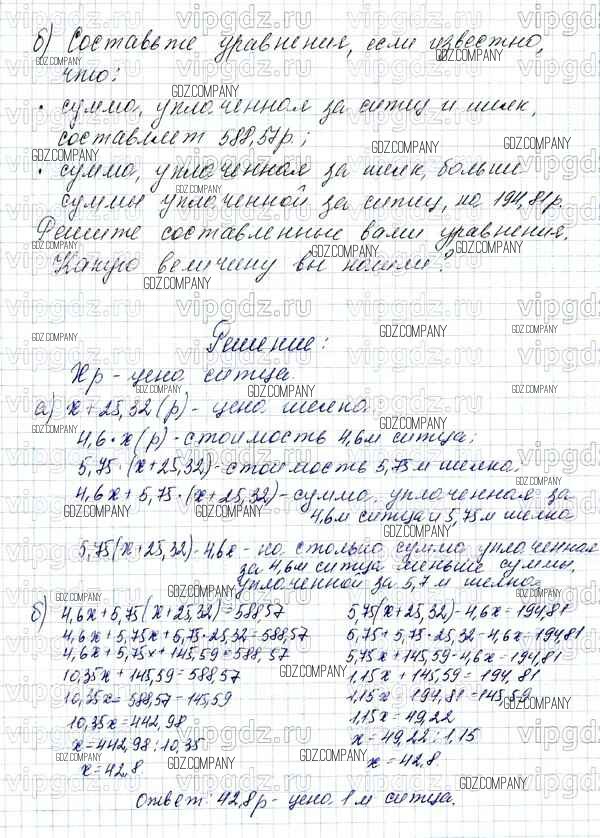 б) Составьте уравнения, если известно,
что:
• сумма, уплаченная за ситец и шелк,
составляет 588,57р.;
• сумма, уплаченная за шелк, больше
суммы уплаченной за ситец, на 194,81р.
Решите составленные вами уравнения.
Какую величину вы нашли?
Решение:
Xр - цена ситца.
а) x + 25,32 (р) - цена шелка.
4,6 · x (р) - стоимость 4,6м ситца;
5,75 · (x + 25,32) - стоимость 5,75м шелка;
4,6x + 5,75 · (x + 25,32) - сумма, уплаченная за
4,6м ситца и 5,75м шелка
5,75(x + 25,32) - 4,6x - на столько сумма уплаченная
за 4,6м ситца меньше суммы,
уплаченной за 5,7м шелка.
б) 4,6x + 5,75(x + 25,32) = 588,57
4,6x + 5,75x + 5,75 · 25,32 = 588,57
4,6x + 5,75x + 145,59 = 588,57
10,35x + 145,59 = 588,57
10,35x = 588,57 - 145,59
10,35x = 442,98
x = 442,98 : 10,35
x = 42,8.
5,75(x + 25,32) - 4,6x = 194,81
5,75 + 5,75 · 25,32 - 4,6x = 194,81
5,75x + 145,59 - 4,6x = 194,81
1,15x + 145,59 = 194,81
1,15x = 194,81 - 145,59
1,15x = 49,22
x = 49,22 : 1,15
x = 42,8.
Ответ: 42,8р - цена 1м ситца.
vipgdz.ru
GDZ.COMPANY